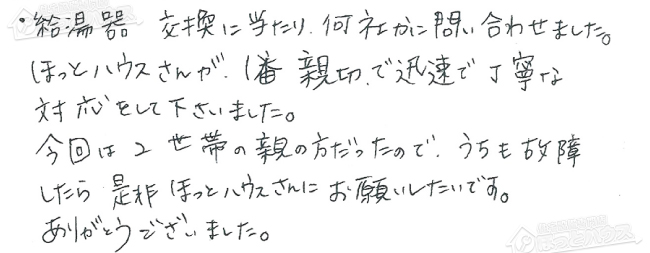 ・給湯器 交換に当たり、何社かに問い合わせました。
ほっとハウスさんが、1番 親切、で迅速で丁寧な
対応をして下さいました。
今回は2世帯の親の方だったので、うちも故障
したら是非ほっとハウスさんにお願いしたいです。
ありがとうございました。